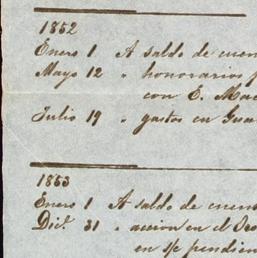 1852
Enero 1 A saldo de cuen
Mayo 12 " honorarios p
con E. Mac
Julio 19 " gastos en Gua
1853
Enero 1 A saldo de cuen
Dic. 31 " accion en el
en s/c pendien